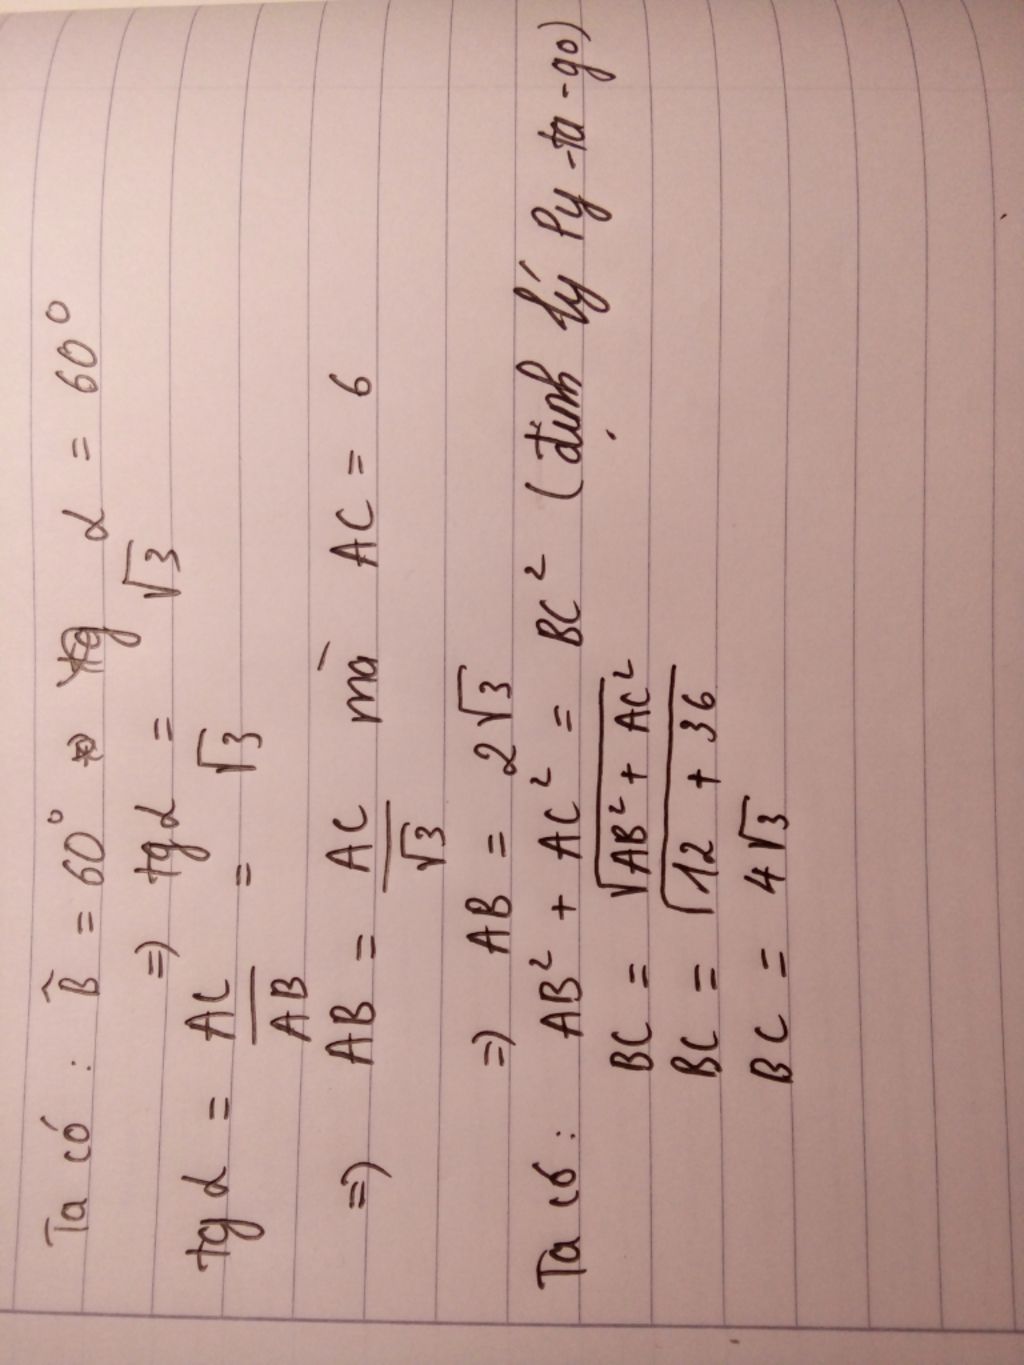 Ta có : B̂ = 60° α = 60°
=) tgα = √3
tgα = AC/AB = √3
=) AB = AC/√3 mà AC = 6
=) AB = 2√3
Ta có : AB² + AC² = BC² (định lý Py-ta-go)
BC = √(AB² + AC²)
BC = √(12 + 36)
BC = 4√3